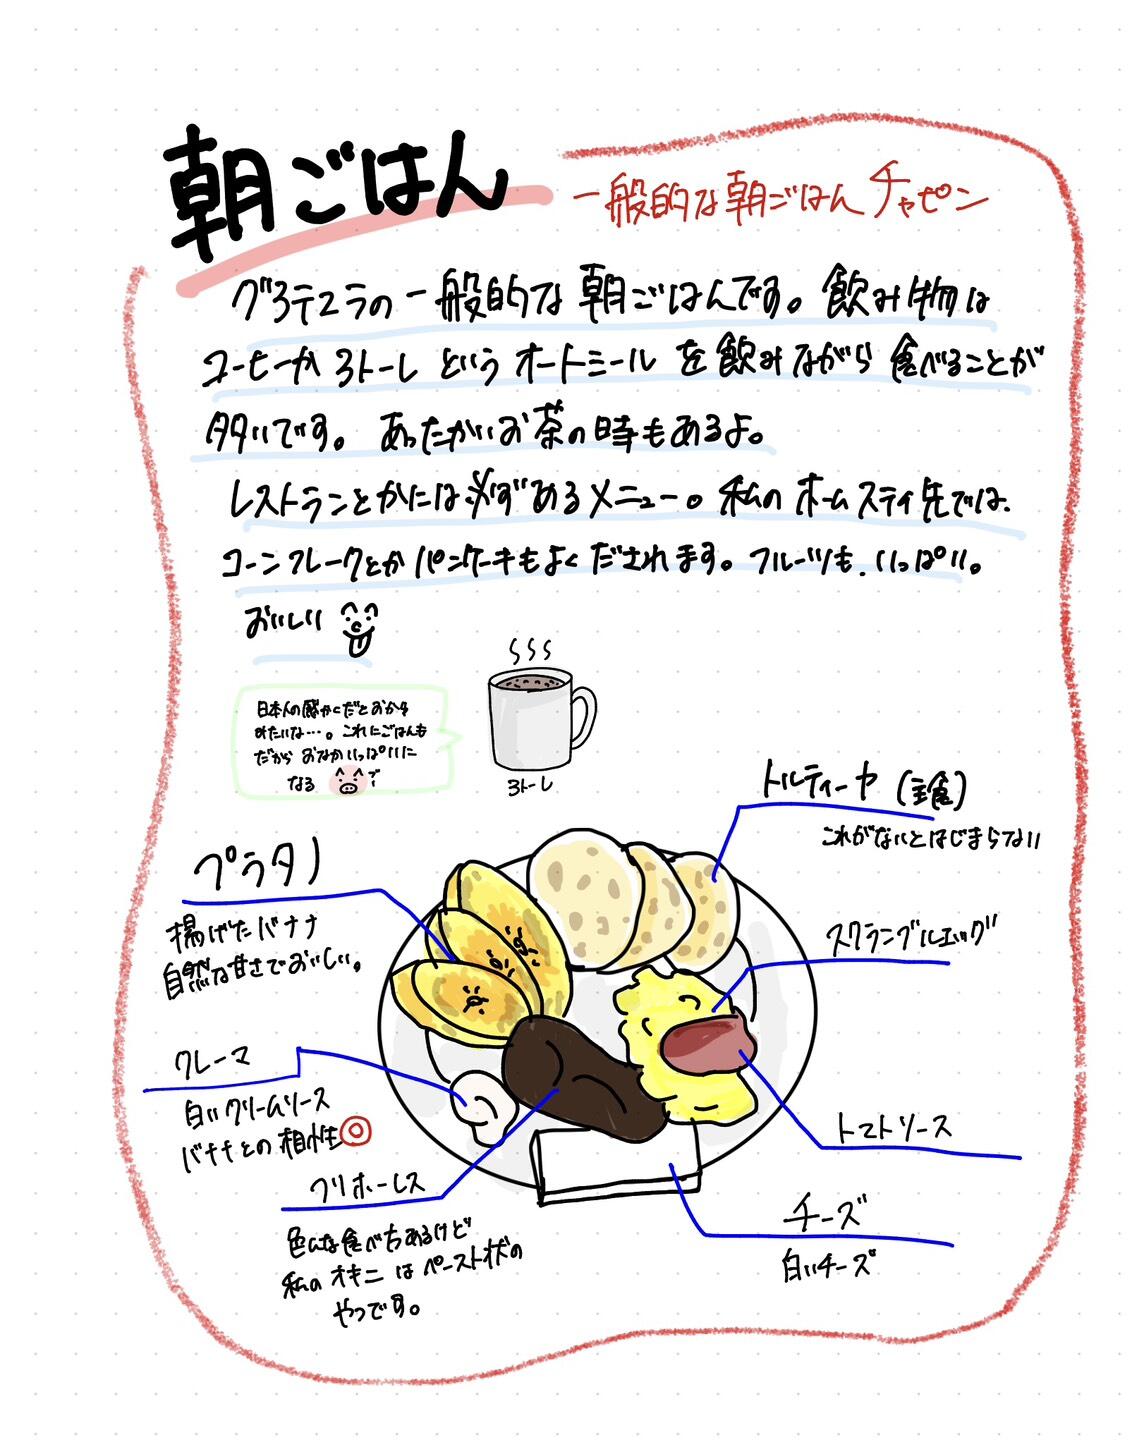 朝ごはん
一般的な朝ごはんチャピン
グアテマラの一般的な朝ごはんです。飲み物は
コーヒーかアトーレというオートミールを飲みながら食べることが
多いです。あったかいお茶の時もあるよ。
レストランとかには必ずあるメニュー。私のホームステイ先では、
コーンフレークとかパンケーキもよくだされます。フルーツも、いっぱい。
おいしい
日本人の感かくだとおかず
みたいな…。これにごはんも
だから おなかいっぱいに
なる
アトーレ
トルティーヤ（主食）
これがないとはじまらない
プラタノ
揚げたバナナ
自然な甘さでおいしい。
スクランブルエッグ
クレーマ
白いクリームソース
バナナとの相性◎
トマトソース
フリホーレス
色んな食べ方あるけど
私のオキニはペースト状の
やつです。
チーズ
白いチーズ